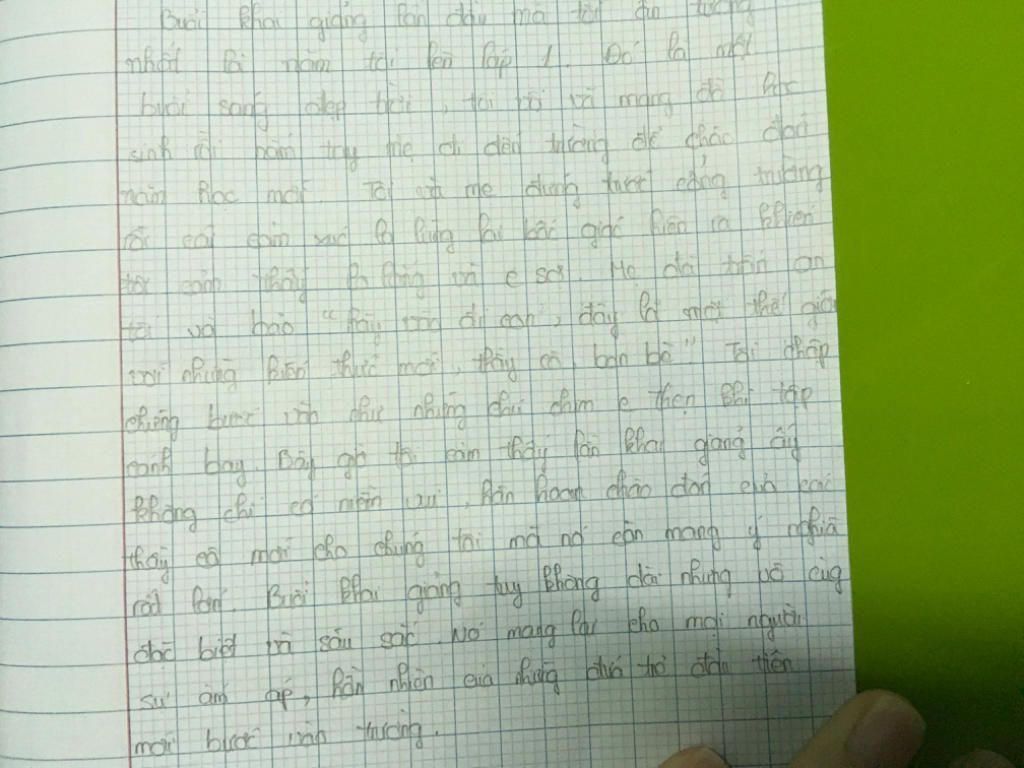 Buổi khai giảng lần đầu mà tôi ấn tượng
nhất là năm tôi lên lớp 1. Đó là một
buổi sáng đẹp trời, tôi vã mang đồ học
sinh rồi nắm tay mẹ đi đến trường để chào đón
năm học mới. Tôi và mẹ đứng trước cổng trường
rồi cái cảm xúc lạ lùng lại bất giác hiện ra khiến
tôi cảm thấy lo lắng và e sợ. Mẹ đã trấn an
tôi và bảo "Hãy vào đi con, đây là một thế giới
với những kiến thức mới, thầy cô, bạn bè" Tôi chập
chững bước vào như những chú chim e thẹn khi tập
cánh bay. Bây giờ tôi cảm thấy lần khai giảng ấy
không chỉ có niềm vui, hân hoan chào đón của các
thầy cô mới cho chúng tôi mà nó còn mang ý nghĩa
rất lớn. Buổi khai giảng tuy không dài nhưng vô cùg
đặc biệt và sâu sắc. Nó mang lại cho mọi người
sự ấm áp, hồn nhiên của những đứa trẻ đầu tiên
mới bước vào trường.